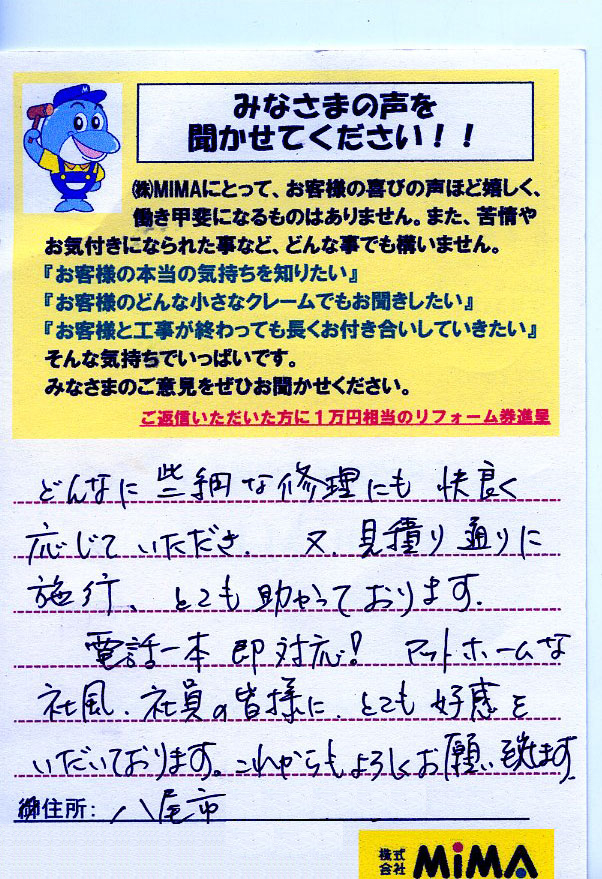 みなさまの声を
聞かせてください！！
㈱MIMAにとって、お客様の喜びの声ほど嬉しく、
働き甲斐になるものはありません。また、苦情や
お気付きになられた事など、どんな事でも構いません。
『お客様の本当の気持ちを知りたい』
『お客様のどんな小さなクレームでもお聞きしたい』
『お客様と工事が終わっても長くお付き合いしていきたい』
そんな気持ちでいっぱいです。
みなさまのご意見をぜひお聞かせください。
ご返信いただいた方に１万円相当のリフォーム券進呈
どんなに些細な修理にも快良く
応じていただき、又、見積り通りに
施行、とても助かっております。
電話一本即対応！アットホームな
社風、社員の皆様に、とても好感を
いただいております。これからもよろしくお願い致します
御住所：八尾市
株式会社 MiMA